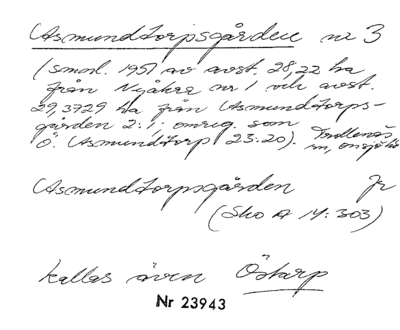 Asmundtorpsgården nr 3
(smål. 1951 av avst. 28,22 ha
från Nyåker nr 1 och avst.
29,3729 ha från Asmundtorps-
gården 2:1; omreg. som
Ö. Asmundtorp 23:20). Trollenäs
Asmundtorpsgården Jr
(Sko A 14:303)
kallas även Östarp
Nr 23943